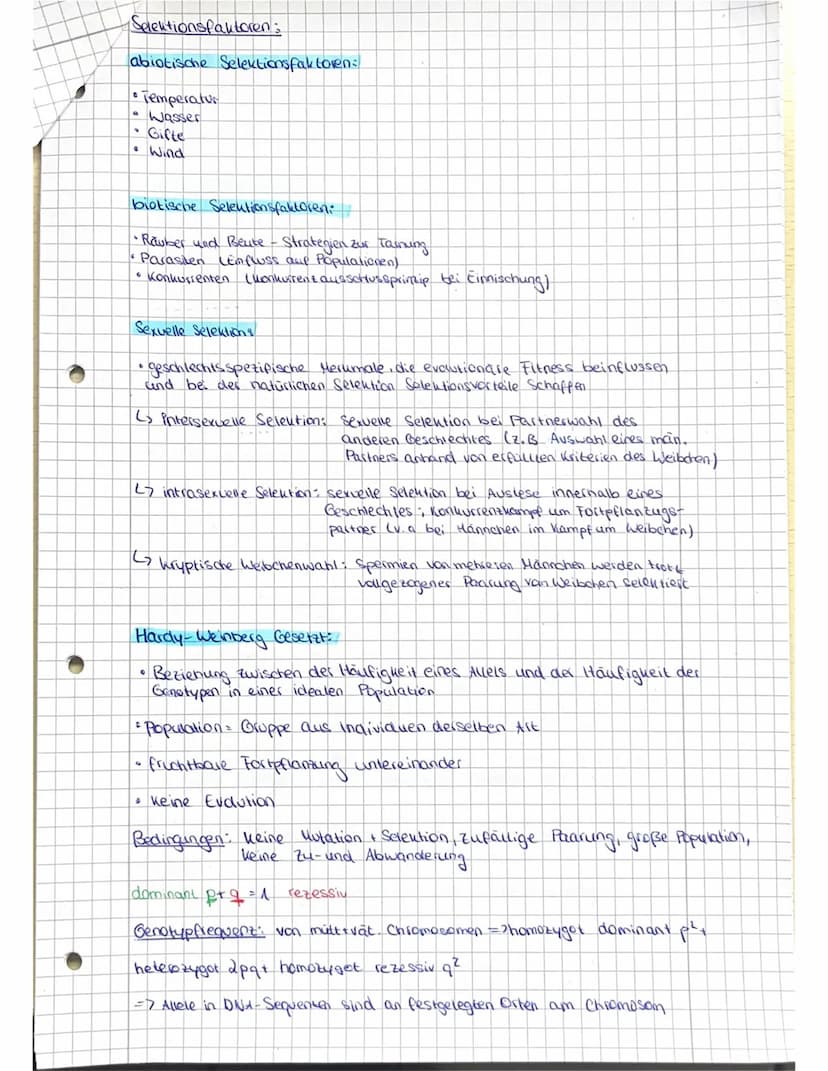 Selektionsfaktoren:
abiotische Selektionsfaktoren:
• Temperatur
• Wasser
• Gifte
• Wind
biotische Selektionsfaktoren:
• Räuber und Beute - Strategien zur Tarnung
• Parasiten (Einfluss auf Populationen)
• Konkurrenten (Konkurrentausschlussprinzip bei Einnischung)
Sexuelle Selektion:
• geschlechtsspezifische Merkmale, die evolutionäre Fitness beinflussen
und bei der natürlichen Selektion Selektionsvorteile schaffen
↳ intersexuelle Selektion: sexuelle Selektion bei Partnerwahl des
anderen Geschlechtes (z.B Auswahl eines män.
Partners anhand von erfüllten Kriterien des Weibchen)
↳ intrasexuelle Selektion: sexuelle Selektion bei Auslese innerhalb eines
Geschlechtes; Konkurrenzkampf um Fortpflanzungs-
partner (v.a bei Männchen im Kampf um Weibchen)
↳ kryptische Weibchenwahl: Spermien von mehreren Männchen werden trotz
vollgezogener Paarung von Weibchen selektiert
Hardy-Weinberg Gesetzt:
• Beziehung zwischen der Häufigkeit eines Allels und der Häufigkeit der
Genotypen in einer idealen Population
• Population = Gruppe aus Individuen derselben Art
• fruchtbare Fortpflanzung untereinander
• keine Evolution
Bedingungen: keine Mutation + Selektion, zufällige Paarung, große Population,
keine Zu- und Abwanderung
dominant p + q = 1 rezessiv
Genotypfrequenz: von mütt + vät. Chromosomen => homozygot dominant p² +
heterozygot 2pq + homozygot rezessiv q²
=> Allele in DNA-Sequenzen sind an festgelegten Orten am Chromosom